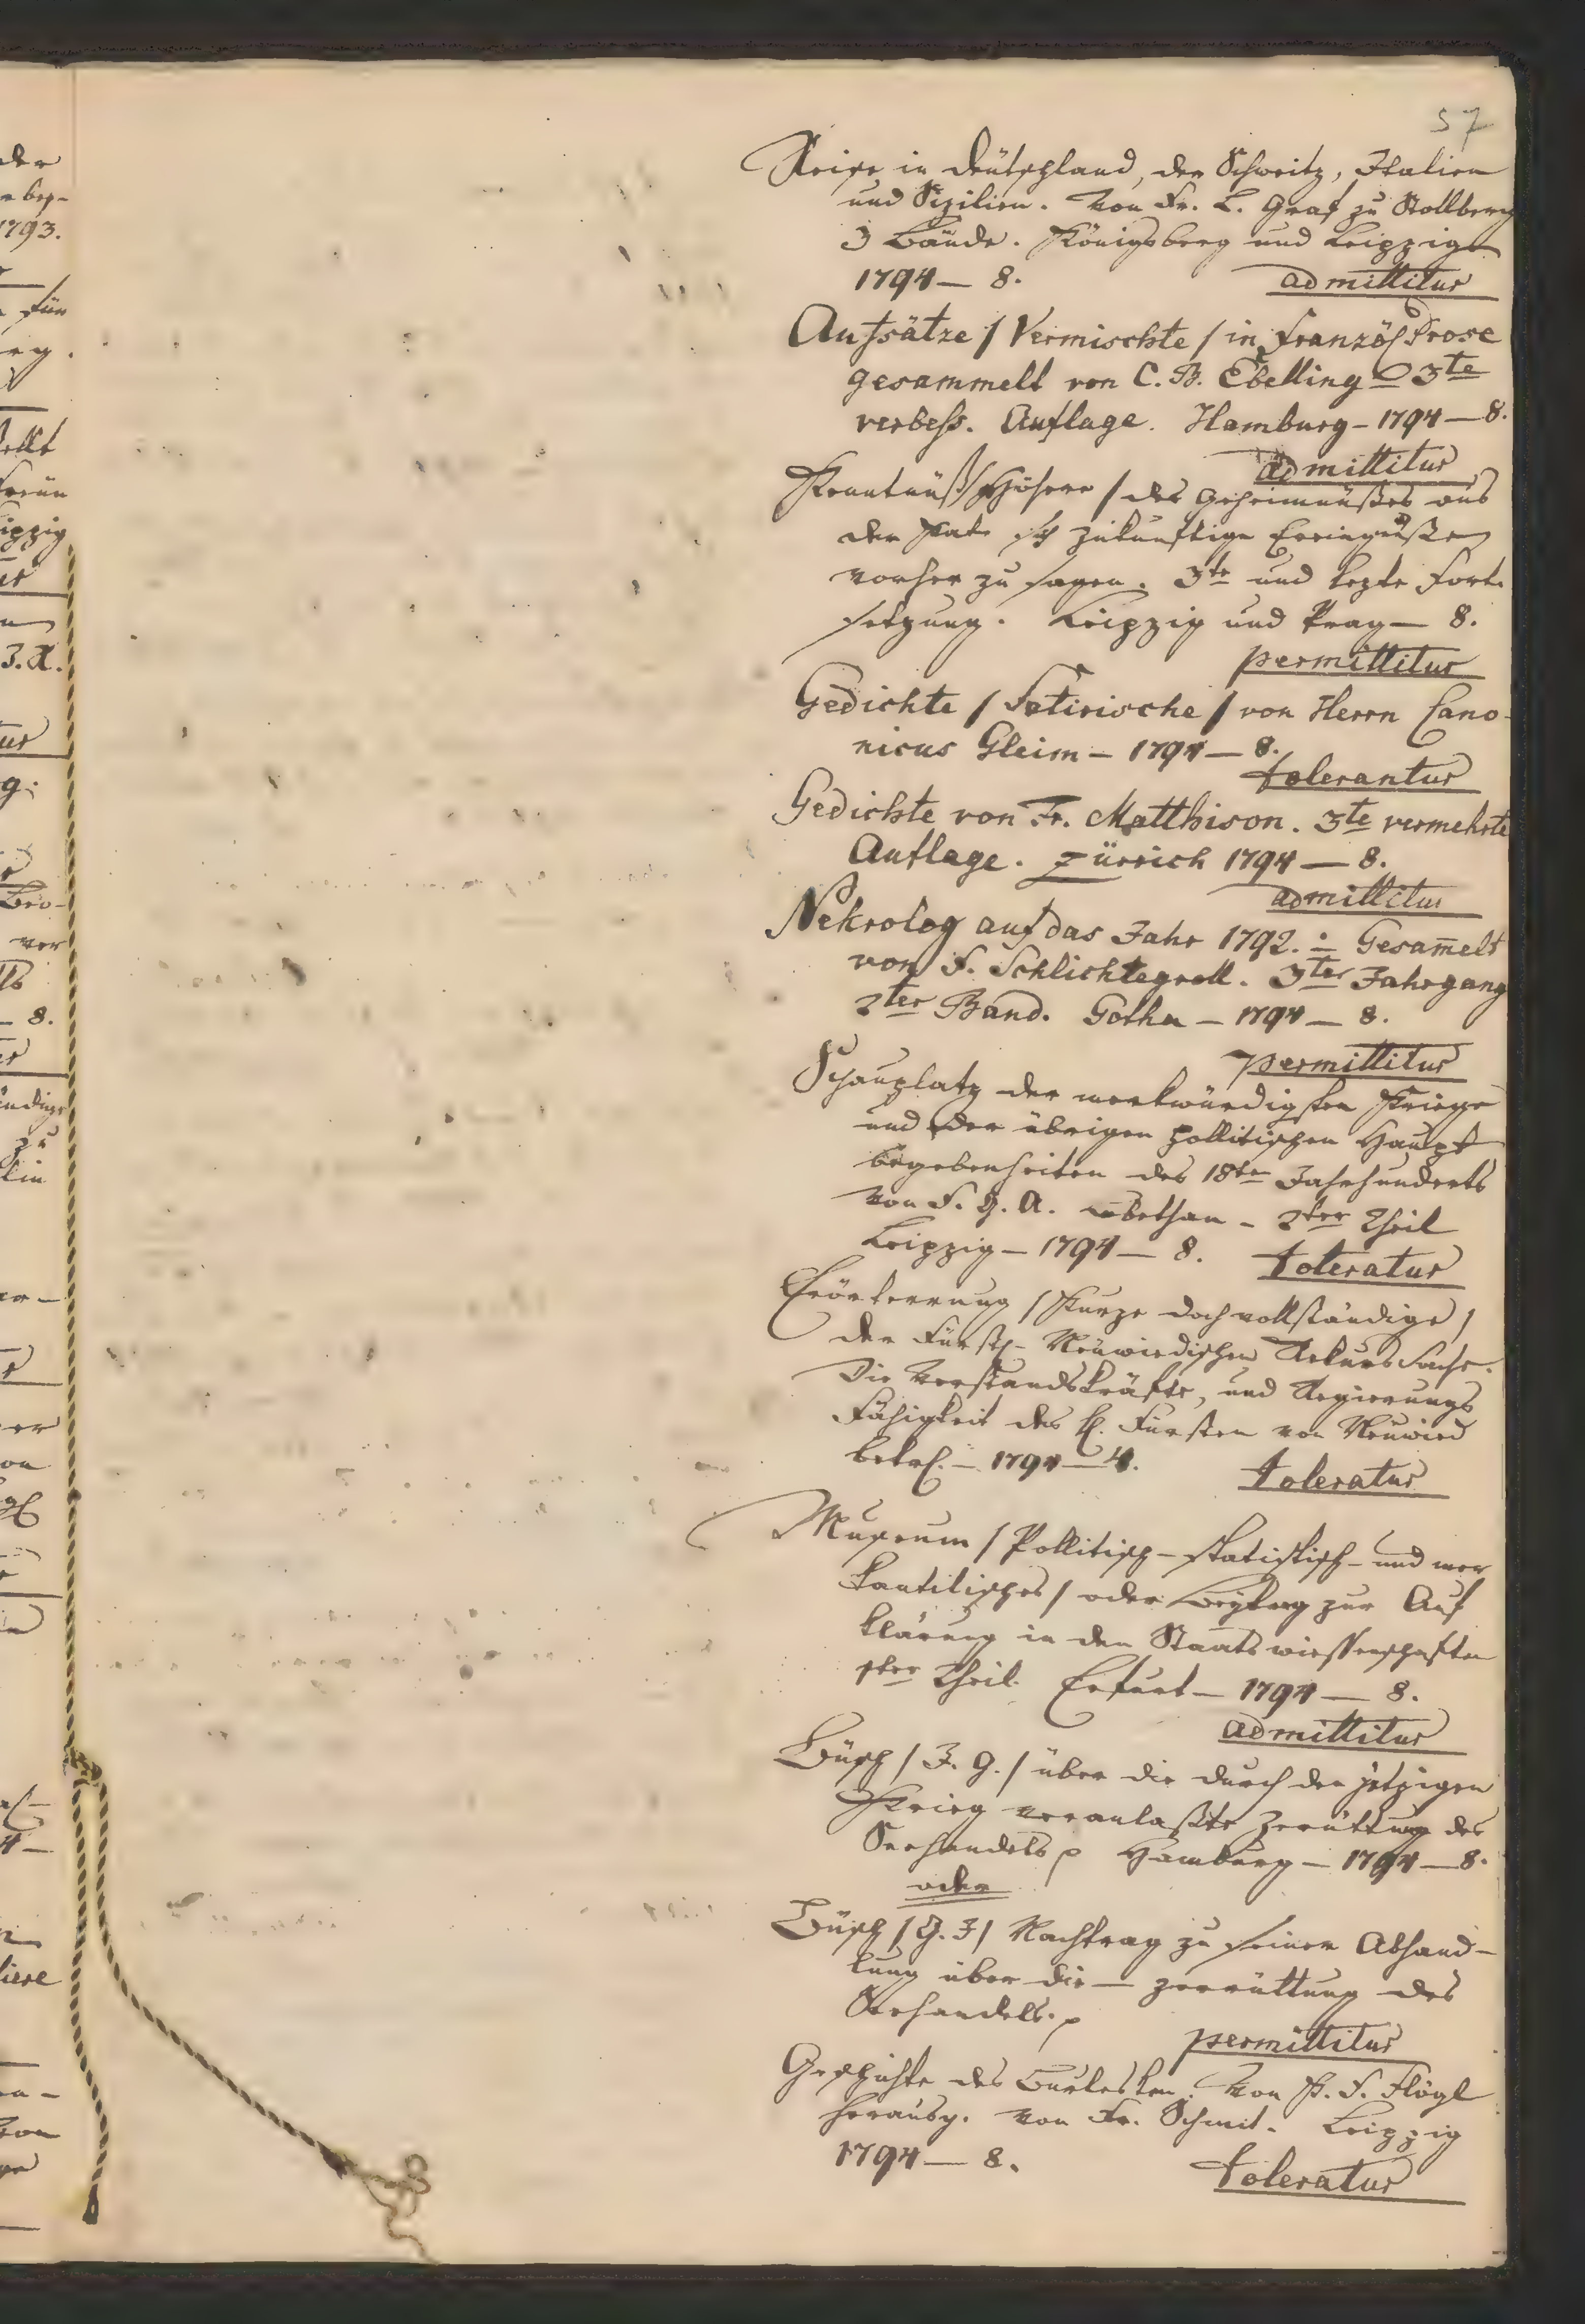 57
Reise in Deütschland, der Schweitz, Italien
und Sizilien. Von Fr. L. Graf zu Stollberg
3 Bände. Königsberg und Leipzig
1794 — 8. admittitur
Aufsätze / Vermischte / in Französ. Prose
gesammelt von C. B. Ebelling 3te
verbeß. Auflage. Hamburg – 1794 — 8.
admittitur
Kenntnüß / Höhere / des Geheimnüßes aus
der zukünftige Ereingnüße
vorher zu sagen. 3te und lezte Fort
setzung. Leipzig und Prag — 8.
permittitur
Gedichte / Satirische / von Herrn Cano-
nicus Gleim – 1794 — 8.
tolerantur
Gedichte von Fr. Matthison. 3te vermehrte
Auflage. Zürrich 1794 — 8.
admittitur
Nekrolog auf das Jahr 1792. Gesam̄elt
von F. Schlichtegroll. 3ter Jahrgang
2ter Band. Gotha – 1794 — 8.
permittitur
Schauplatz der merkwürdigsten Kriege
und der übrigen pollitischen Haupt
begebenheiten des 18ten Jahrhunderts
von F. G. A. – 2ter Theil
Leipzig – 1794 — 8. toleratur
Erörterrung / Kurze doch vollständige /
der Fürstl. Neüwiedischen Rekurs Sache.
Die Verstandskräfte, und Regierungs
Fähigkeit des H. Fürsten von Neüwied
betref. – 1794 — 4. toleratur
Museum / Pollitisch – statistisch – und mer
kantilisches / oder Beÿtrag zur Auf
klärung in den Staatswiessenschaften
1ter Theil. Erfurt – 1794 — 8.
admittitur
Büsch / J. G. / über die durch den jetzigen
Krieg veranlaßte Zerüttung des
Seehandels Hamburg – 1794 — 8.
oder
Büsch / G. J / Nachtrag zu seiner Abhand-
lung über die — zerrüttung des
Seehandels.
permittitur
Geschichte des Burlesken. Von K. F. Flögl
herausg. von Fr. Schmit. Leipzig
1794 — 8. toleratur